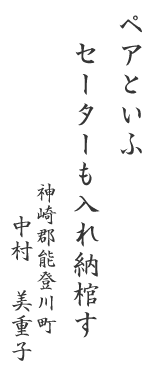 ペアといふ
セーターも入れ納棺す
神崎郡能登川町
中村　美重子